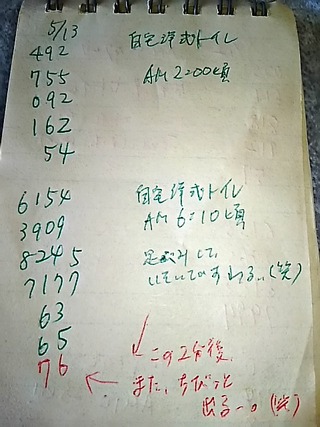 5/13
492 自宅洋式トイレ
755 AM 2:00頃
092
162
54
6154 自宅洋式トイレ
3909 AM 6:10頃
8245 足踏みして、
7177 (笑)
63
65
76 この2分後、
また、ちびっと
出る〜。(笑)